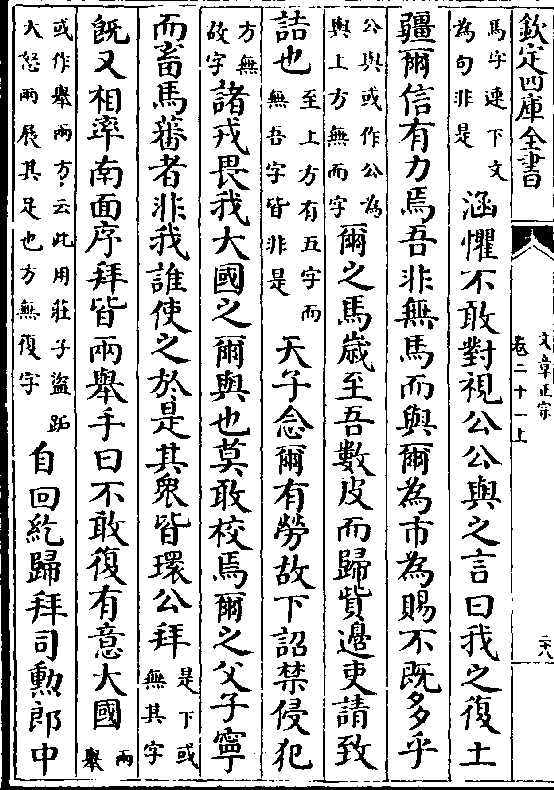 欽定四庫全書
文章正宗
卷二十一上
二十八
馬字連下文
為句非是
涵懼不敢對視公公與之言曰我之復土
疆爾信有力焉吾非無馬而與爾為市為賜不既多乎
公與或作公為
與上方無而字
爾之馬歲至吾數皮而歸貲邊吏請致
詰也
至上方有五字而
無吾字皆非是
天子念爾有勞故下詔禁侵犯
方無
故字
諸戎畏我大國之爾與也莫敢校焉爾之父子寧
而畜馬蕃者非我誰使之於是其衆皆環公拜
是下或
無其字
既又相率南面序拜皆兩舉手曰不敢復有意大國
兩
舉
或作舉兩方云此用莊子盜跖
大怒兩展其足也方無復字
自回紇歸拜司勲郎中